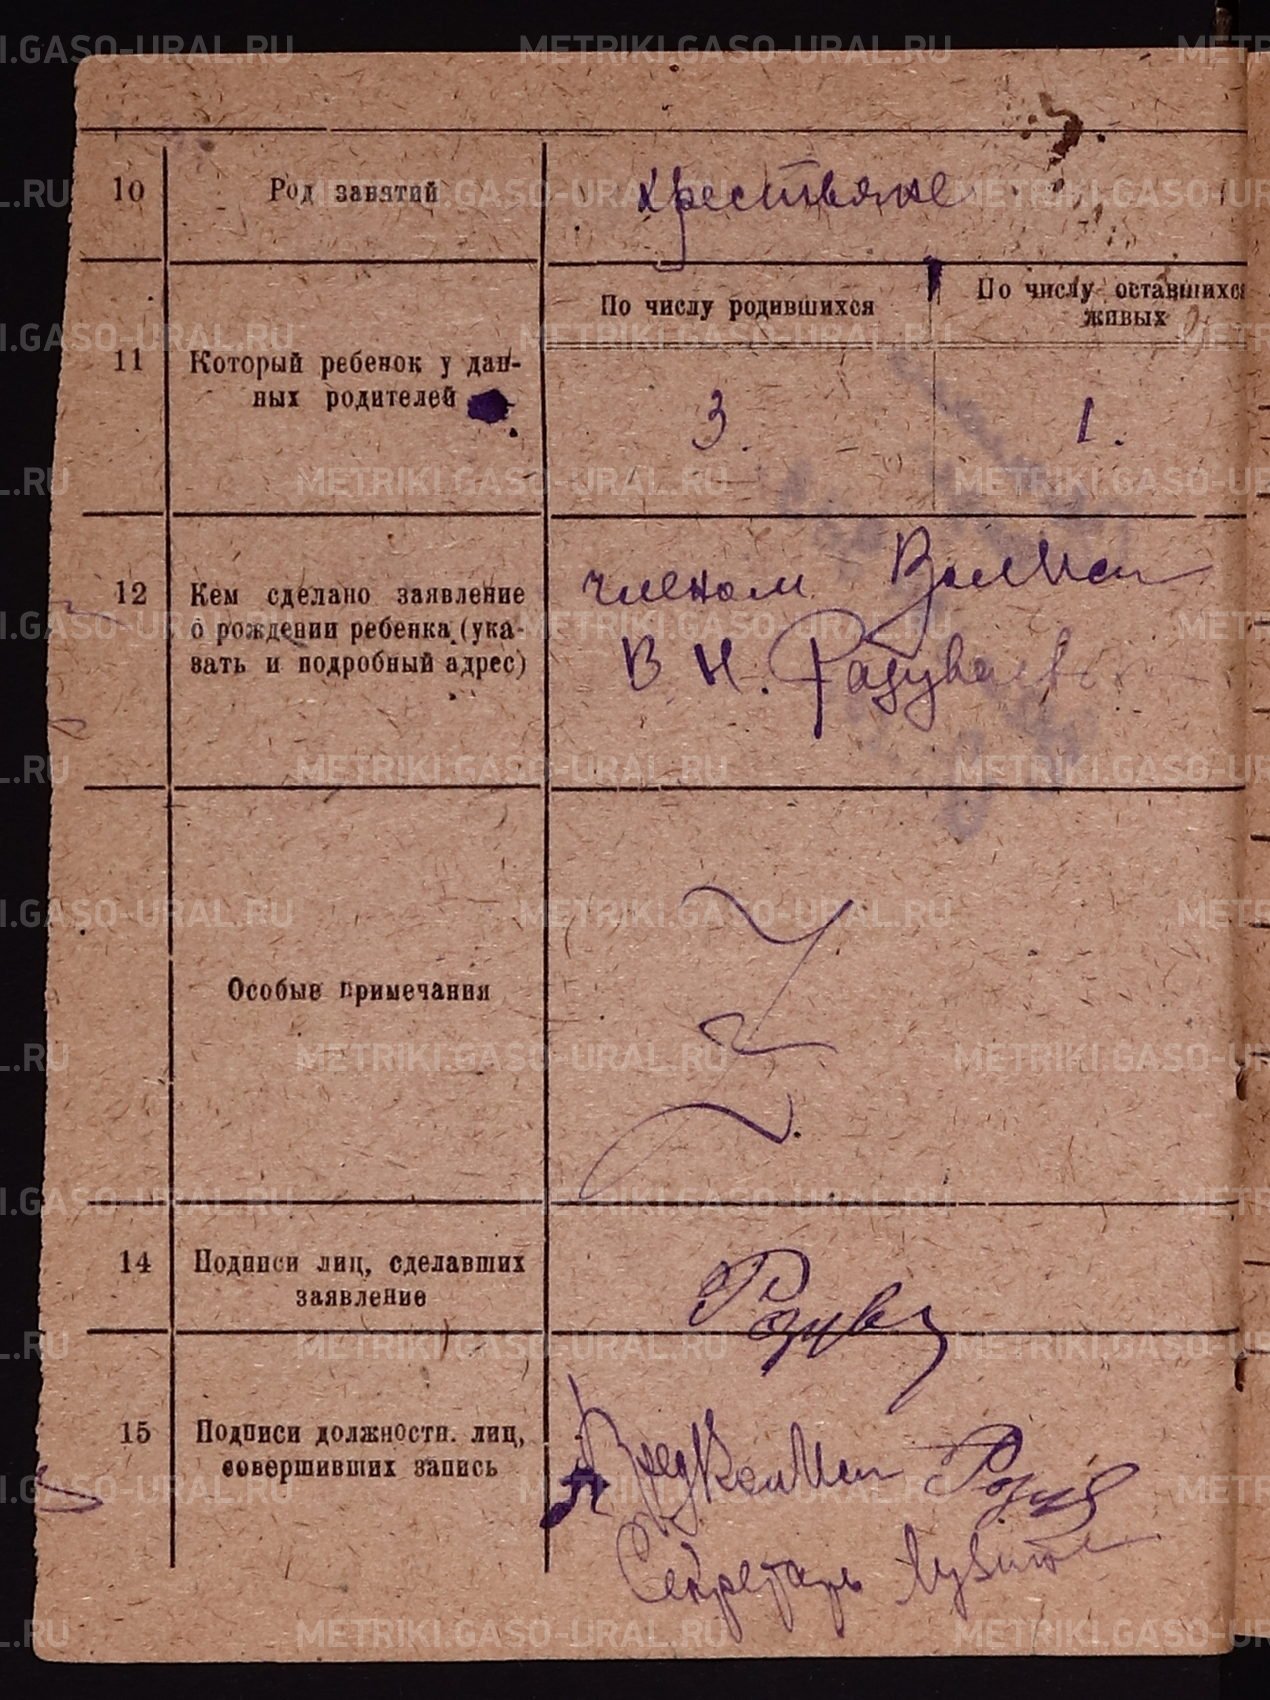 10
Род занятий
крестьяне
11
Который ребенок у дан-
ных родителей
По числу родившихся
По числу оставшихся
живых
3.
1.
12
Кем сделано заявление
о рождении ребенка (ука-
зать и подробный адрес)
членом
В Н.
Особые примечания
14
Подписи лиц, сделавших
заявление
15
Подписи должностн. лиц,
совершивших запись
Секретарь
METRIKI.GASO-URAL.RU